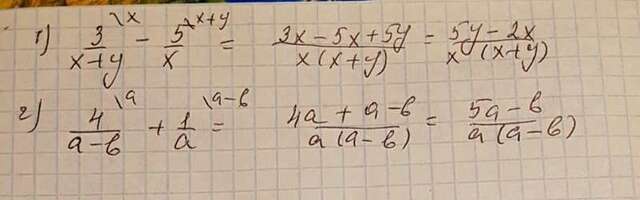 1) 3/(x+y) \x - 5/x \x+y = (3x-5x+5y)/(x(x+y)) = (5y-2x)/(x(x+y))
2) 4/(a-b) \a + 1/a \a-b = (4a+a-b)/(a(a-b)) = (5a-b)/(a(a-b))